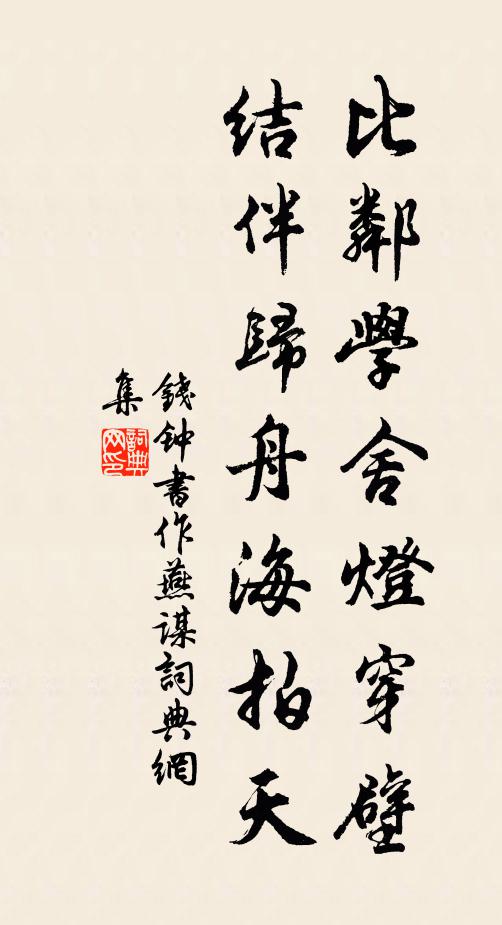 比鄰學舍燈穿壁
結伴歸舟海拍天
錢鍾書作燕謀詞典網
集
詞典
网印